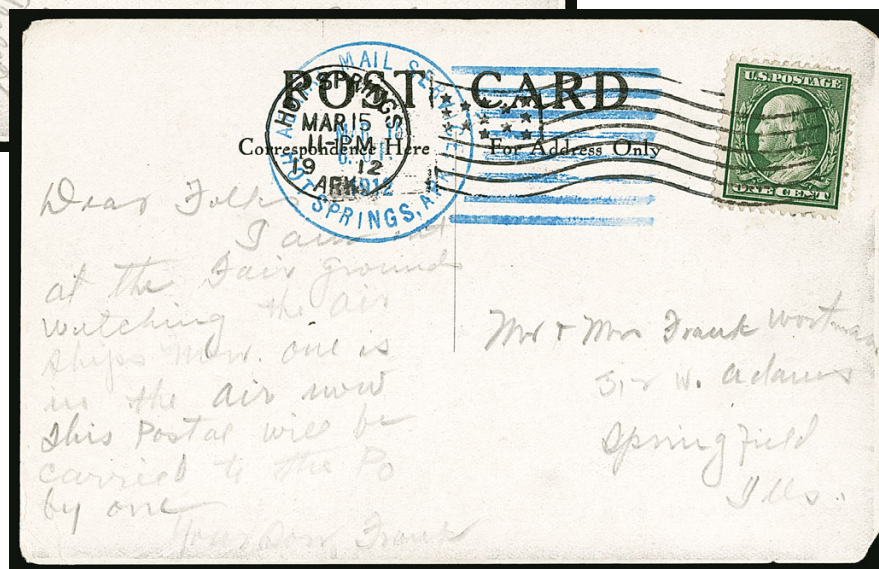 POST CARD
Correspondence Here
For Address Only
U.S. POSTAGE
ONE CENT
HOT SPRINGS
MAR 15
11-PM
19 12
ARK.
MAIL SERVICE
HOT SPRINGS, ARK.
1912
Dear Folks
I am out
at the Fair grounds
watching the air
ships now. one is
in the air now
This Postal will be
carried to the Po
by one
Your Son Frank
Mr & Mrs Frank Wortman
W. Adams
Springfield
Ills.